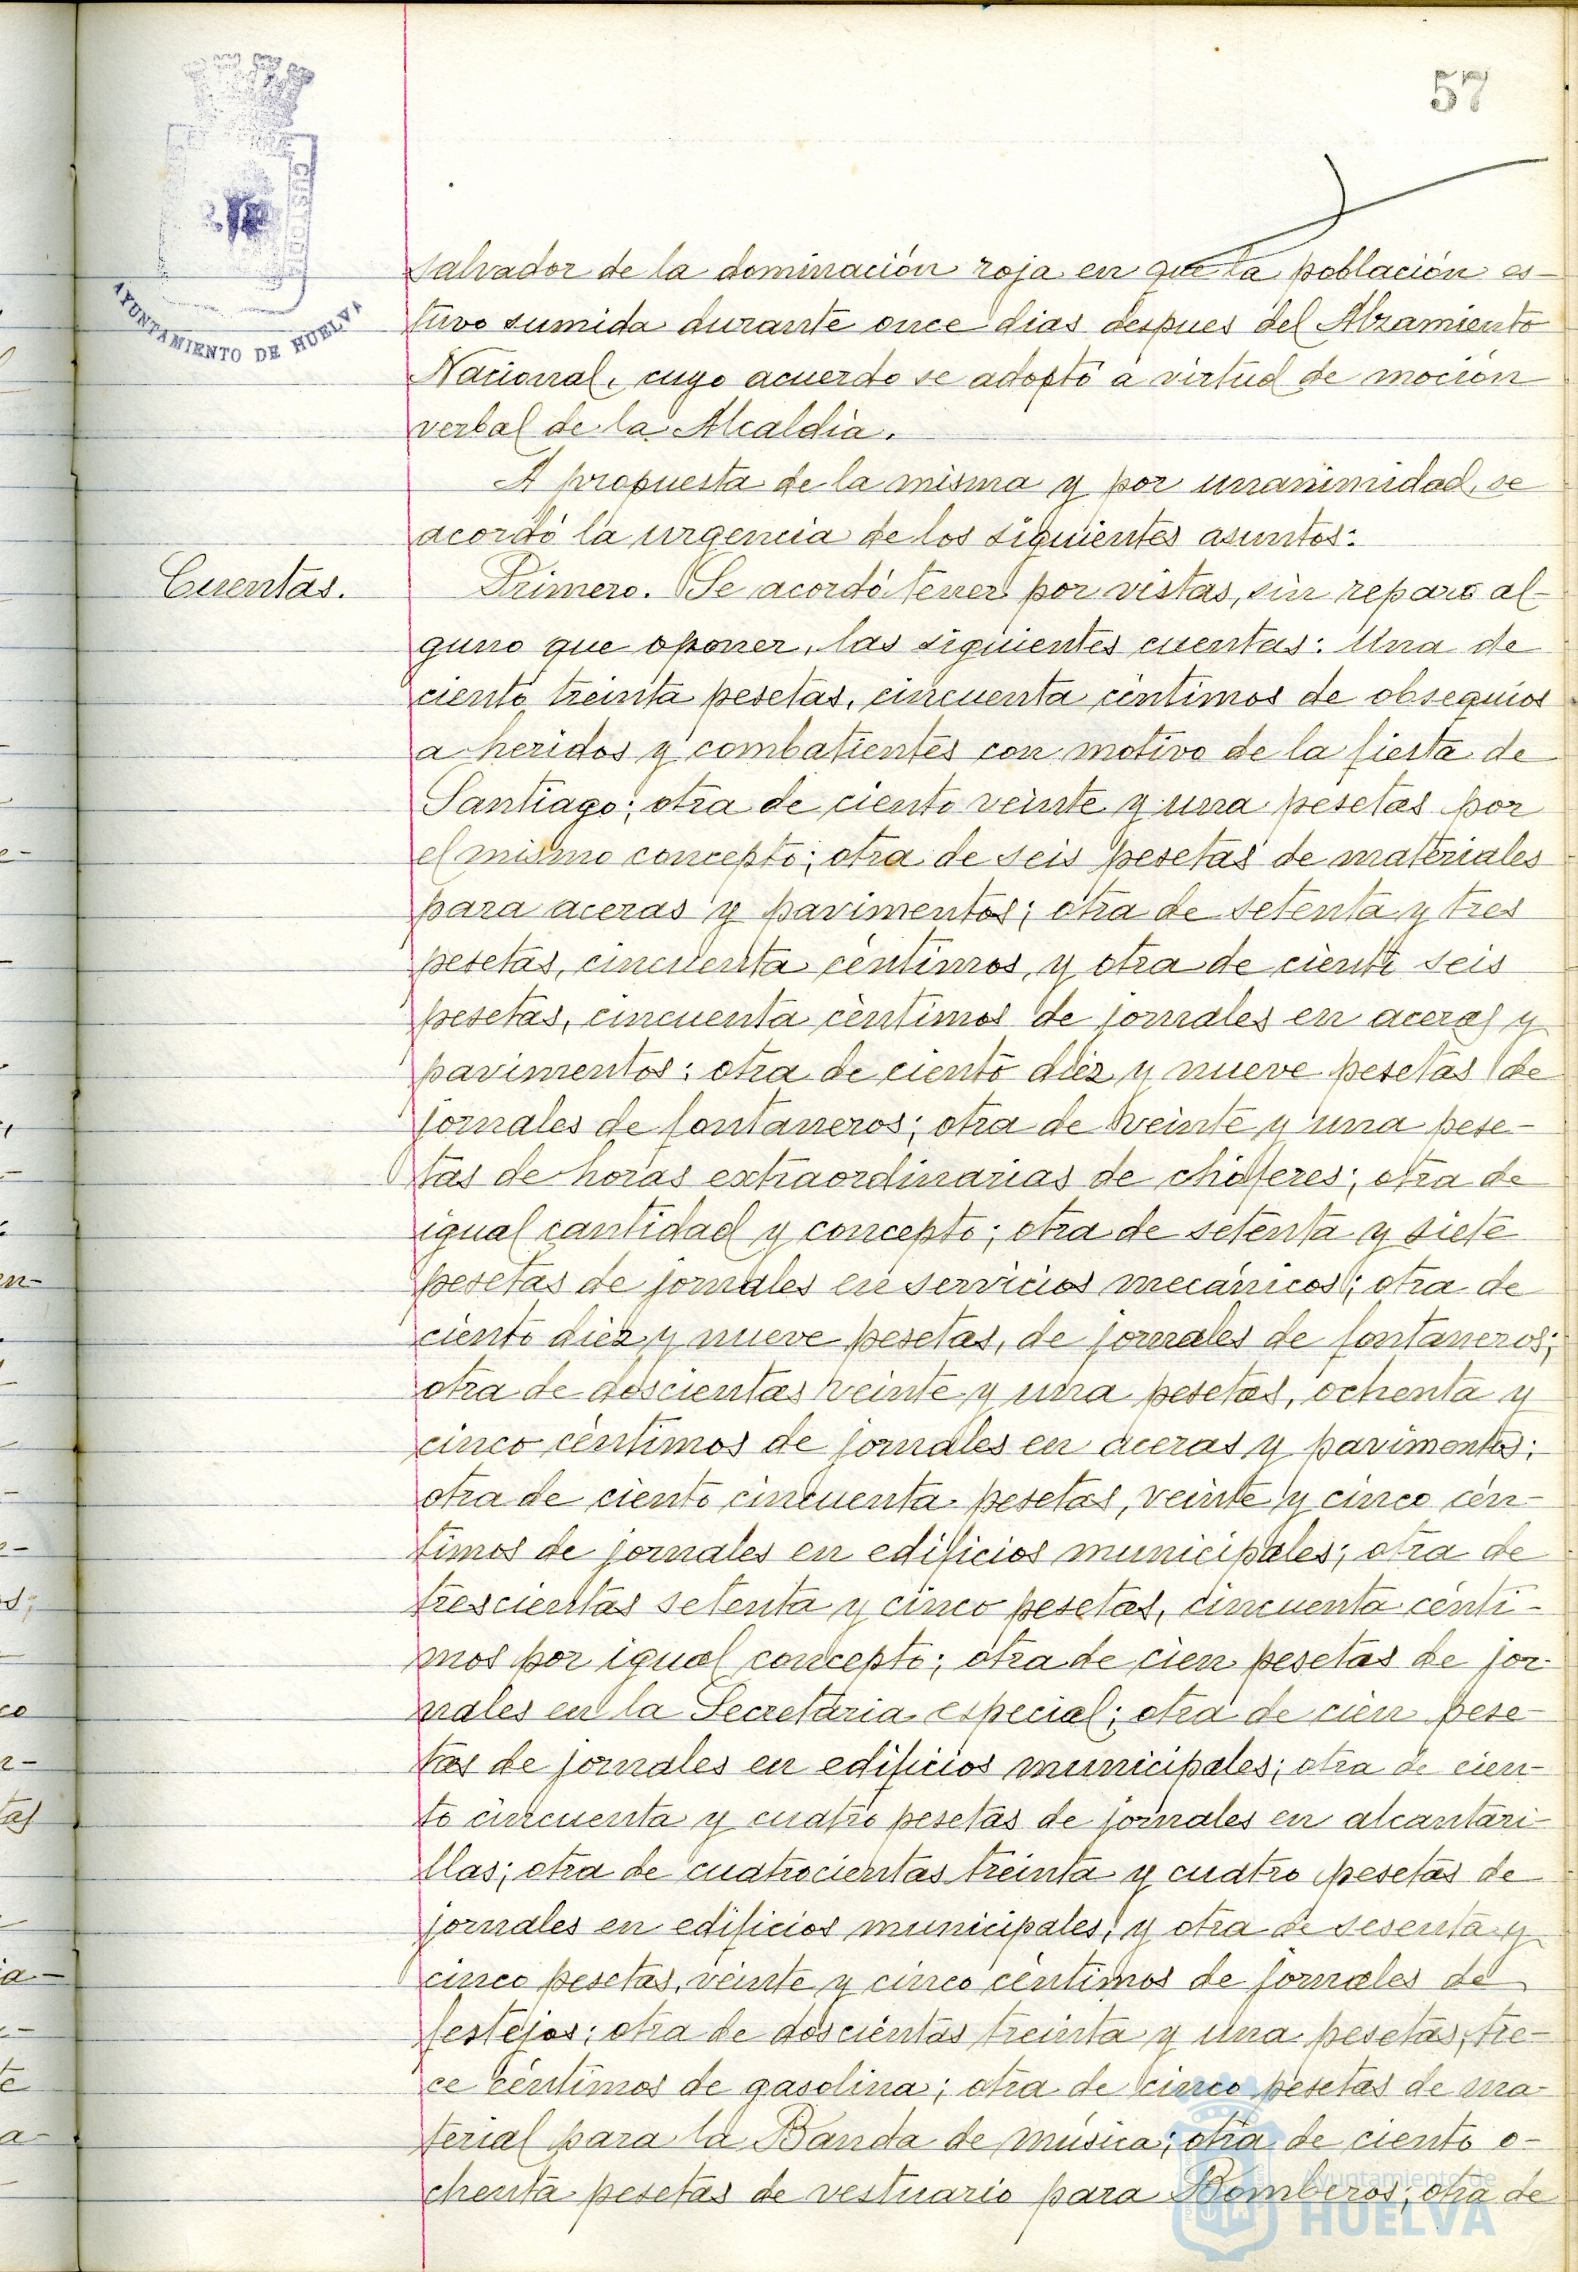 57
AYUNTAMIENTO DE HUELVA
salvador de la dominación roja en que la población es-
tuvo sumida durante once dias despues del Alzamiento
Nacional, cuyo acuerdo se adoptó a virtud de moción
verbal de la Alcaldia.
A propuesta de la misma y por unanimidad, se
acordó la urgencia de los siguientes asuntos:
Cuentas.
Primero. Se acordó tener por vistas, sin reparo al-
guno que oponer, las siguientes cuentas: Una de
ciento treinta pesetas, cincuenta céntimos de obsequios
a heridos y combatientes con motivo de la fiesta de
Santiago; otra de ciento veinte y una pesetas por
el mismo concepto; otra de seis pesetas de materiales
para aceras y pavimentos; otra de setenta y tres
pesetas, cincuenta céntimos, y otra de ciento seis
pesetas, cincuenta céntimos de jornales en aceras y
pavimentos; otra de ciento diez y nueve pesetas de
jornales de fontaneros; otra de veinte y una pese-
tas de horas extraordinarias de choferes; otra de
igual cantidad y concepto; otra de setenta y siete
pesetas de jornales en servicios mecánicos; otra de
ciento diez y nueve pesetas, de jornales de fontaneros;
otra de doscientas veinte y una pesetas, ochenta y
cinco céntimos de jornales en aceras y pavimentos;
otra de ciento cincuenta pesetas, veinte y cinco cén-
timos de jornales en edificios municipales; otra de
trescientas setenta y cinco pesetas, cincuenta cénti-
mos por igual concepto; otra de cien pesetas de jor-
nales en la Secretaria especial; otra de cien pese-
tas de jornales en edificios municipales; otra de cien-
to cincuenta y cuatro pesetas de jornales en alcantari-
llas; otra de cuatrocientas treinta y cuatro pesetas de
jornales en edificios municipales, y otra de sesenta y
cinco pesetas, veinte y cinco céntimos de jornales de
festejos; otra de doscientas treinta y una pesetas, tre-
ce céntimos de gasolina; otra de cinco pesetas de ma-
terial para la Banda de música; otra de ciento o-
chenta pesetas de vestuario para Bomberos; otra de
Ayuntamiento de
HUELVA